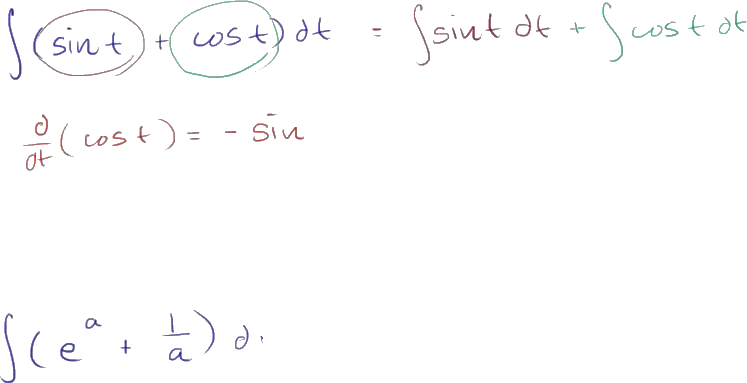 ∫(sin t + cos t) dt = ∫sin t dt + ∫cos t dt
d/dt (cos t) = - sin
∫(e^a + 1/a) d